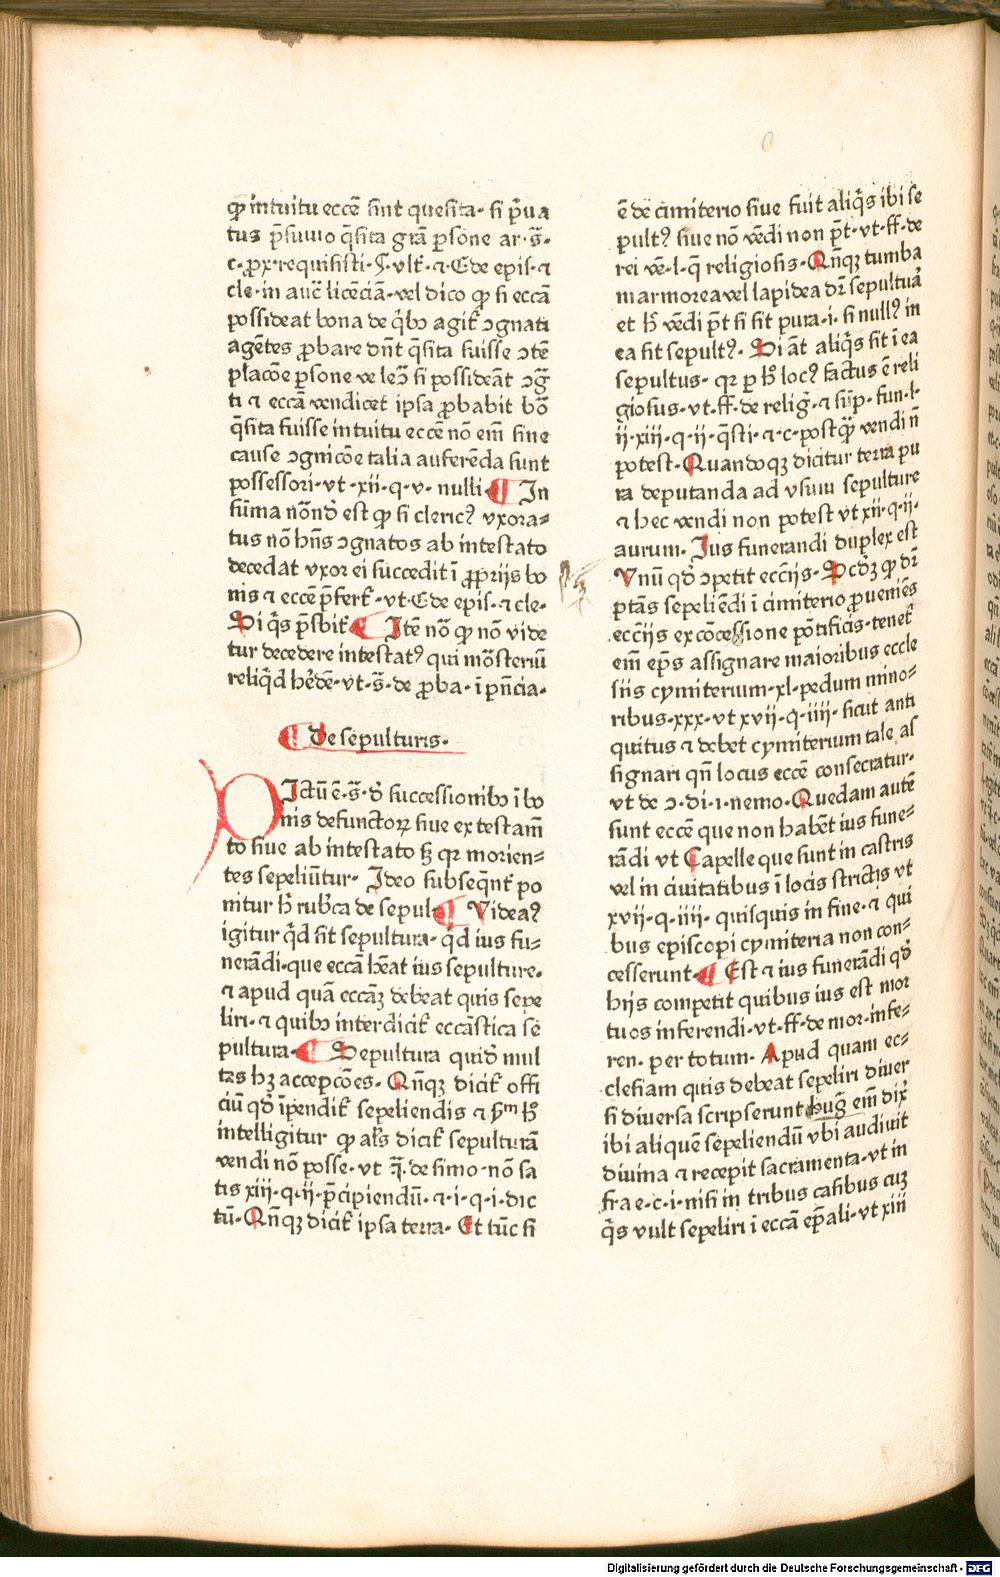 ꝙ intuitu eccē sint quesita· si p̄ua
tus p̄sumo q̄sita grā ꝑsone ar·s̄·
c·ꝓx·requisisti·§·vlt̄·⁊·E de epis·⁊
cle·in auc̄ licēciā·vel dico ꝙ si eccā
possideat bona de q̄bꝰ agit̄ ↄgnati
agētes ꝓbare dn̄t q̄sita fuisse ↄtē
placōe ꝑsone ve leↄ̄ si possideāt ↄḡ
ti ⁊ eccā vendicet ipsa ꝓbabit bōa
q̄sita fuisse intuitu eccē nō em̄ sine
cause ↄgnicōe talia auferēda sunt
possessori·vt·xii·q·v·nulli ¶ In
sūma nōnd̄ est ꝙ si clericꝰ vxora-
tus nō hn̄s ↄgnatos ab intestato
decedat vxor ei succedit ī ꝓprijs bo
nis ⁊ eccē p̄fert̄·vt·E de epis·⁊ cle·
Si q̄s p̄sbit̄ ¶ Itē nō ꝙ nō vide
tur decedere intestatꝰ qui mōsteriū
reliq̄d hēdē·vt·s̄·de ꝓba·ī pn̄cia·
¶ De sepulturis·
DIctū ē·s̄·d̄ successionibꝰ ī bo
nis defunctoꝝ siue ex testam̄
to siue ab intestato sꝫ qꝛ morien-
tes sepeliūtur· Ideo subseq̄nt̄ po
nitur h̄ rubͨca de sepul· ¶ Videaꝰ
igitur q̄d sit sepultura·q̄d ius fu-
nerādi·que eccā hēat ius sepulture·
⁊ apud quā eccāꝫ debeat quis sepe
liri·⁊ quibꝰ interdicit̄ eccāstica se
pultura· ¶ Sepultura quid̄ mul
tas hꝫ accepcōes· Qn̄qꝫ dicit̄ offi
ciū qd̄ īpendit̄ sepeliendis ⁊ sᵐ hͦ
intelligitur ꝙ al's dicit̄ sepulturā
vendi nō posse·vt q̄·de simo·nō sa
tis xiii·q·ii·p̄cipiendū·⁊·i·q·i·dic
tū· Qn̄qꝫ dicit̄ ipsa terra· Et tūc si
ē de cimiterio siue fuit aliq̄s ibi se
pultꝰ siue nō vēdi non pt̄·vt·ff·de
rei vē·l·q̄ religiosis· Qn̄qꝫ tumba
marmorea vel lapidea dr̄ sepultura
et h̄ vēdi pt̄ si sit pura·i·si nullꝰ in
ea sit sepultꝰ· Si āt aliq̄s sit ī ea
sepultus· qꝛ ꝑ hͦ locꝰ factus ē reli
giosus·vt·ff·de religͣ·⁊ sūp·fun·l·
ii·xiii·q·ii·q̄sti·⁊·c·postq̄ vendi n̄
potest· Quandoqꝫ dicitur terra pu
ra deputanda ad vsum sepulture
⁊ hec vendi non potest vt xii·q·ii·
aurum· Ius funerandi duplex est
Vnū qd̄ ↄpetit ecc̄ijs· Scd̄ꝫ ꝙ dr̄
ptās sepeliēdi ī cimiterio ꝓueniēs
ecc̄ijs ex cōcessione pōtificis·tenet̄
em̄ ep̄s assignare maioribus eccle
siis cymiterium·xl·pedum mino-
ribus·xxx·vt xvii·q·iiii·sicut anti
quitus ⁊ debet cymiterium tale as
signari qn̄ locus eccē consecratur·
vt de ↄ·di·i·nemo· Quedam autē
sunt eccē que non habēt ius fune-
rādi vt Capelle que sunt in castris
vel in ciuitatibus ī locis strictis vt
xvii·q·iiii·quisquis in fine·⁊ qui
bus episcopi cymiteria non con-
cesserunt· ¶ Est ⁊ ius funerādi qd̄
hijs competit quibus ius est mor
tuos inferendi·vt·ff·de mor·infe-
ren·per totum· Apud quam ec-
clesiam quis debeat sepeliri diuer
si diuersa scripserunt hug̅ em̄ dix̄
ibi aliquē sepeliendū vbi audiuit
diuina ⁊ recepit sacramenta·vt in
fra e·c·i·nisi in tribus casibus cuꝫ
q̄s vult sepeliri ī eccā ep̄ali·vt xiii
Digitalisierung gefördert durch die Deutsche Forschungsgemeinschaft - DFG